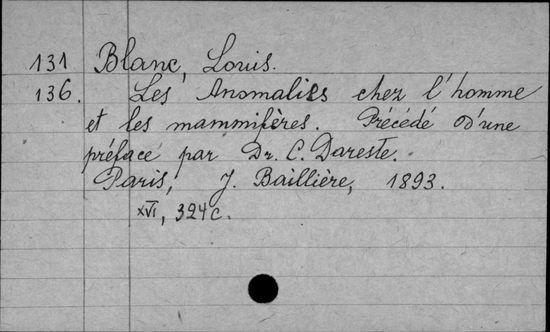 131 Blanc, Louis.
136. Les Anomalies chez l'homme
et les mammifères. Précédé d'une
préface par Dr. C. Dareste.
Paris, J. Baillière, 1893.
XVI, 324 c.